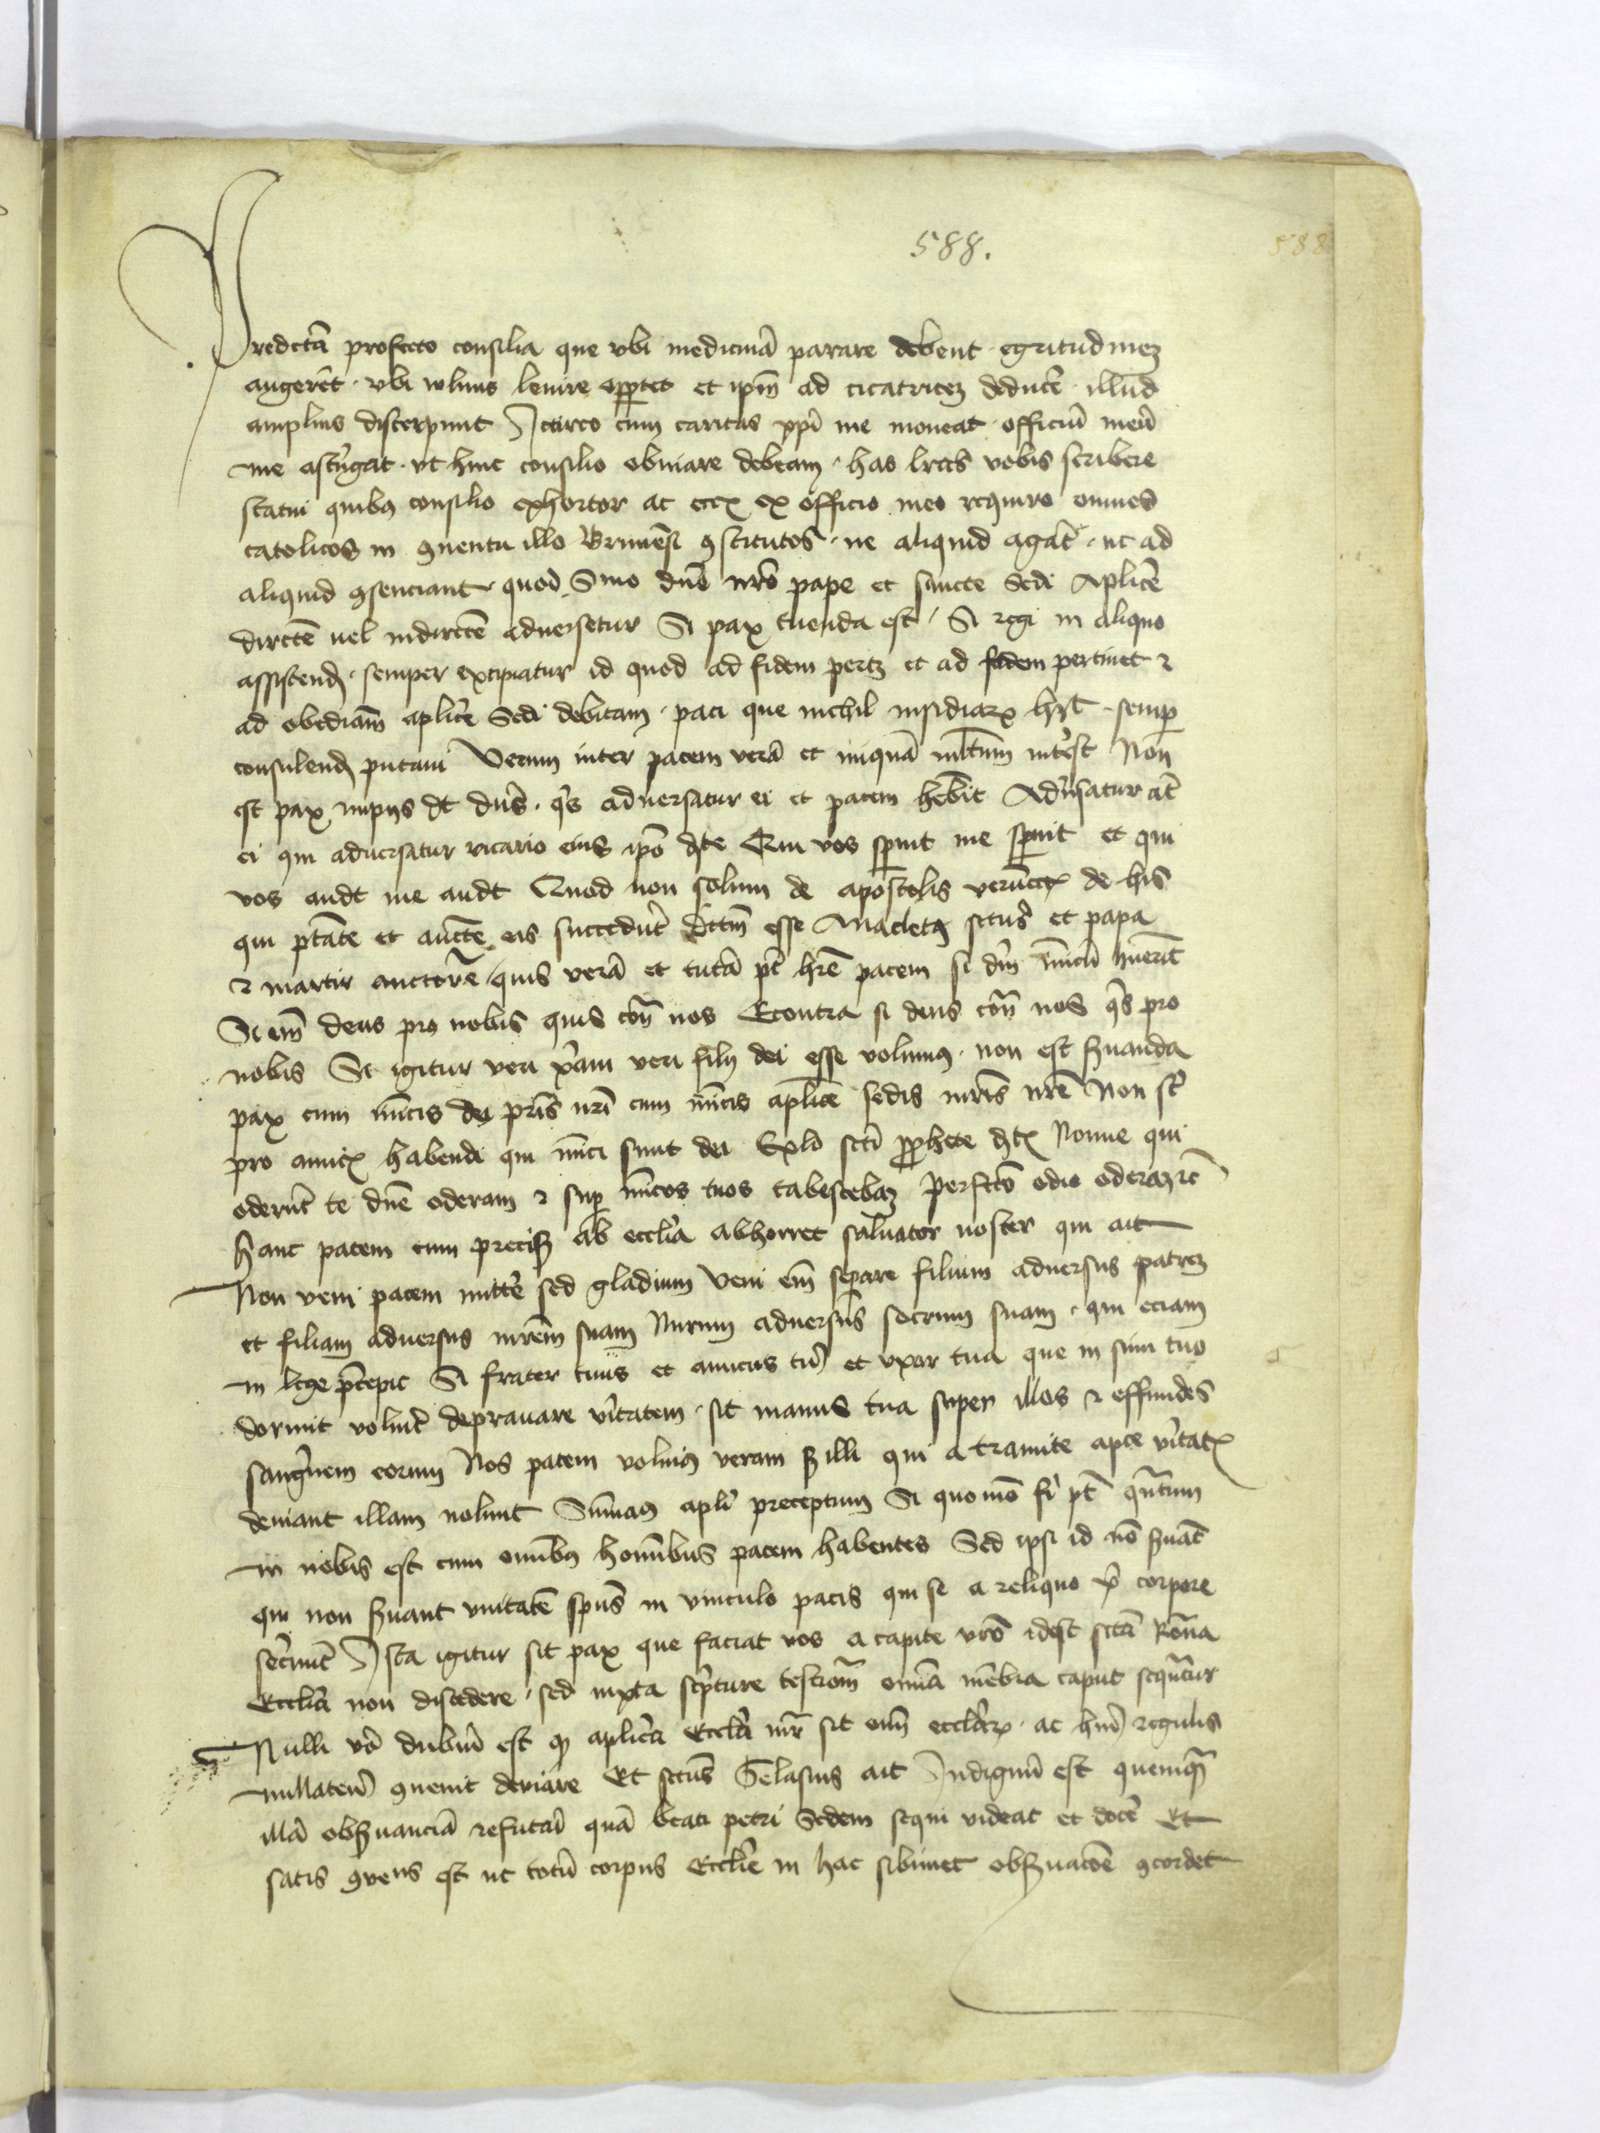 588.
588
Predictā profecto consilia que vbi medicinā parare debent egritudinē
augerēt · vbi wlnus lenire opportet et ipm̄ ad cicatricem deducē · illud
amplius discerpunt Iccirco cum caritas xp̄i me moueat officiū meū
me astrīgat · vt huic consilio obuiare debeam · has lr̄as vobis scribere
statui quibus consilio exhortor ac eciam ex officio meo requiro omnes
catolicos in conuentu illo Brunēsi constitutos · ne aliquid agāt · ut ad
aliquid consenciant quod Smo dn̄o nr̄o pape et sancte Sedi Aplicē
directē uel indirectē aduersetur Si pax tuenda est · Si regi in aliquo
assistend · semper excipiatur id quod ad fidem pertz et ad fidem pertinet et
ad obediam̄ aplicē Sedi debitam · paci que nichil insidiarum hēt · semper
consulend putaui Verum inter pacem verā et iniquā multum intest Non
est pax impijs dt dns · qs aduersatur ei et pacem hebit Aduersatur at
ei qui aduersatur vicario eius ipo dcte Qui vos spnit me spnit et qui
vos audt me audt Quod non solum de apostolis verumeciam de his
qui ptāte et aucte eis succedūt dictum esse Anacletus sctus et papa
et martir auctore quis verā et tutā pt hre pacem si dm̄ inicū huerit
Si em̄ deus pro nobis quis cont nos Econtra si deus cont nos qs pro
nobis Si igitur veri xp̄iani veri filij dei esse volumus · non est seruanda
pax cum inicis dei pris nri cum inicis aplice sedis mris nre Non st
pro amicis habendi qui inici sunt dei Exlo scti prophete dictis Nonne qui
oderūt te dn̄e oderam et super inicos tuos tabescebam perfecto odio oderam etc
hanc pacem cum precisis ab ecclia abhorret saluator noster qui ait
Non veni pacem mittē sed gladium Veni em̄ separe filium aduersus patrem
et filiam aduersus mrēm suam Nurum aduersus socrum suam · qui eciam
in lege precepit Si frater tuus et amicus tuus et vxor tua que in sinu tuo
dormit voluit deprauare veritatem · sit manus tua super illos et effundes
sanguinem eorum Nos pacem volumus veram sed illi qui a tramite apce vitatis
deuiant illam nolunt Seruamus apli preceptum Si quomodo fi pt quantum
in nobis est cum omibus hominibus pacem habentes Sed ipsi id nō seruāt
qui non seruant vnitatē sps in vinculo pacis qui se a reliquo xpi corpore
secernūt Ista igitur sit pax que faciat vos a capite vro idest sctā Romā
Ecclia non discedere · sed iuxta scpture testiom̄ omia mebra caput sequātur
Nulli vo dubiū est quod aplica Ecclia mr̄ sit omn ecclarum · ac huius regulis
nullatenus conuenit deuiare Et sctus Gelasius ait Indignū est quemquam
illā obseruanciā refutare quā beati petri Sedem sequi videat et docē Et
satis conuens est ut totū corpus Ecclie in hac sibimet obseruacone concordet